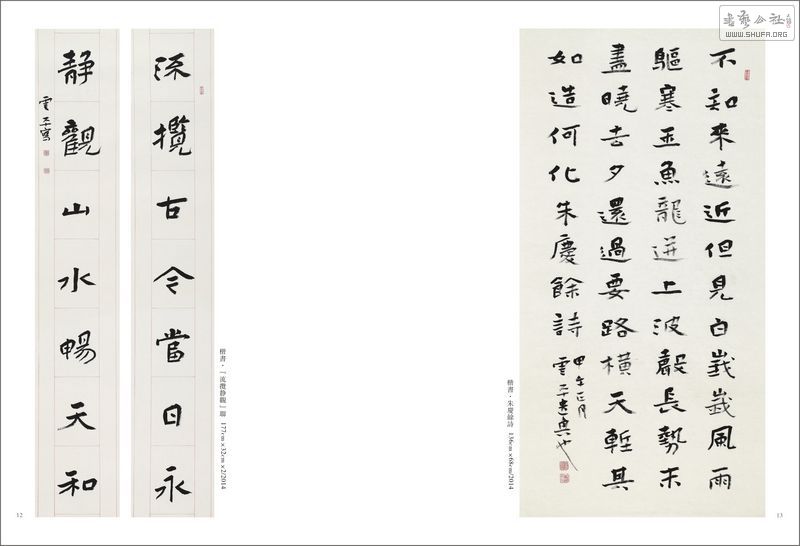 書藝公社
WWW.SHUFA.ORG
不知來遠近但見白峩峩風雨
驅寒玉魚龍迸上波聲長勢未
盡曉去夕還過要路橫天塹其
如造何化朱慶餘詩
甲午正月
雲平遣興也
楷書·朱慶餘詩 136cm×68cm/2014
13
流攬古今當日永
静觀山水暢天和
雲平寫
楷書·「流攬静觀」聯 177cm×32cm×2/2014
12